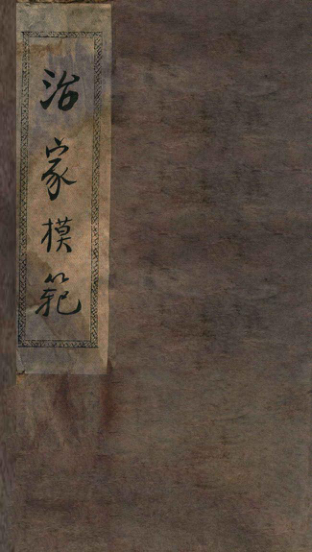 治家模範